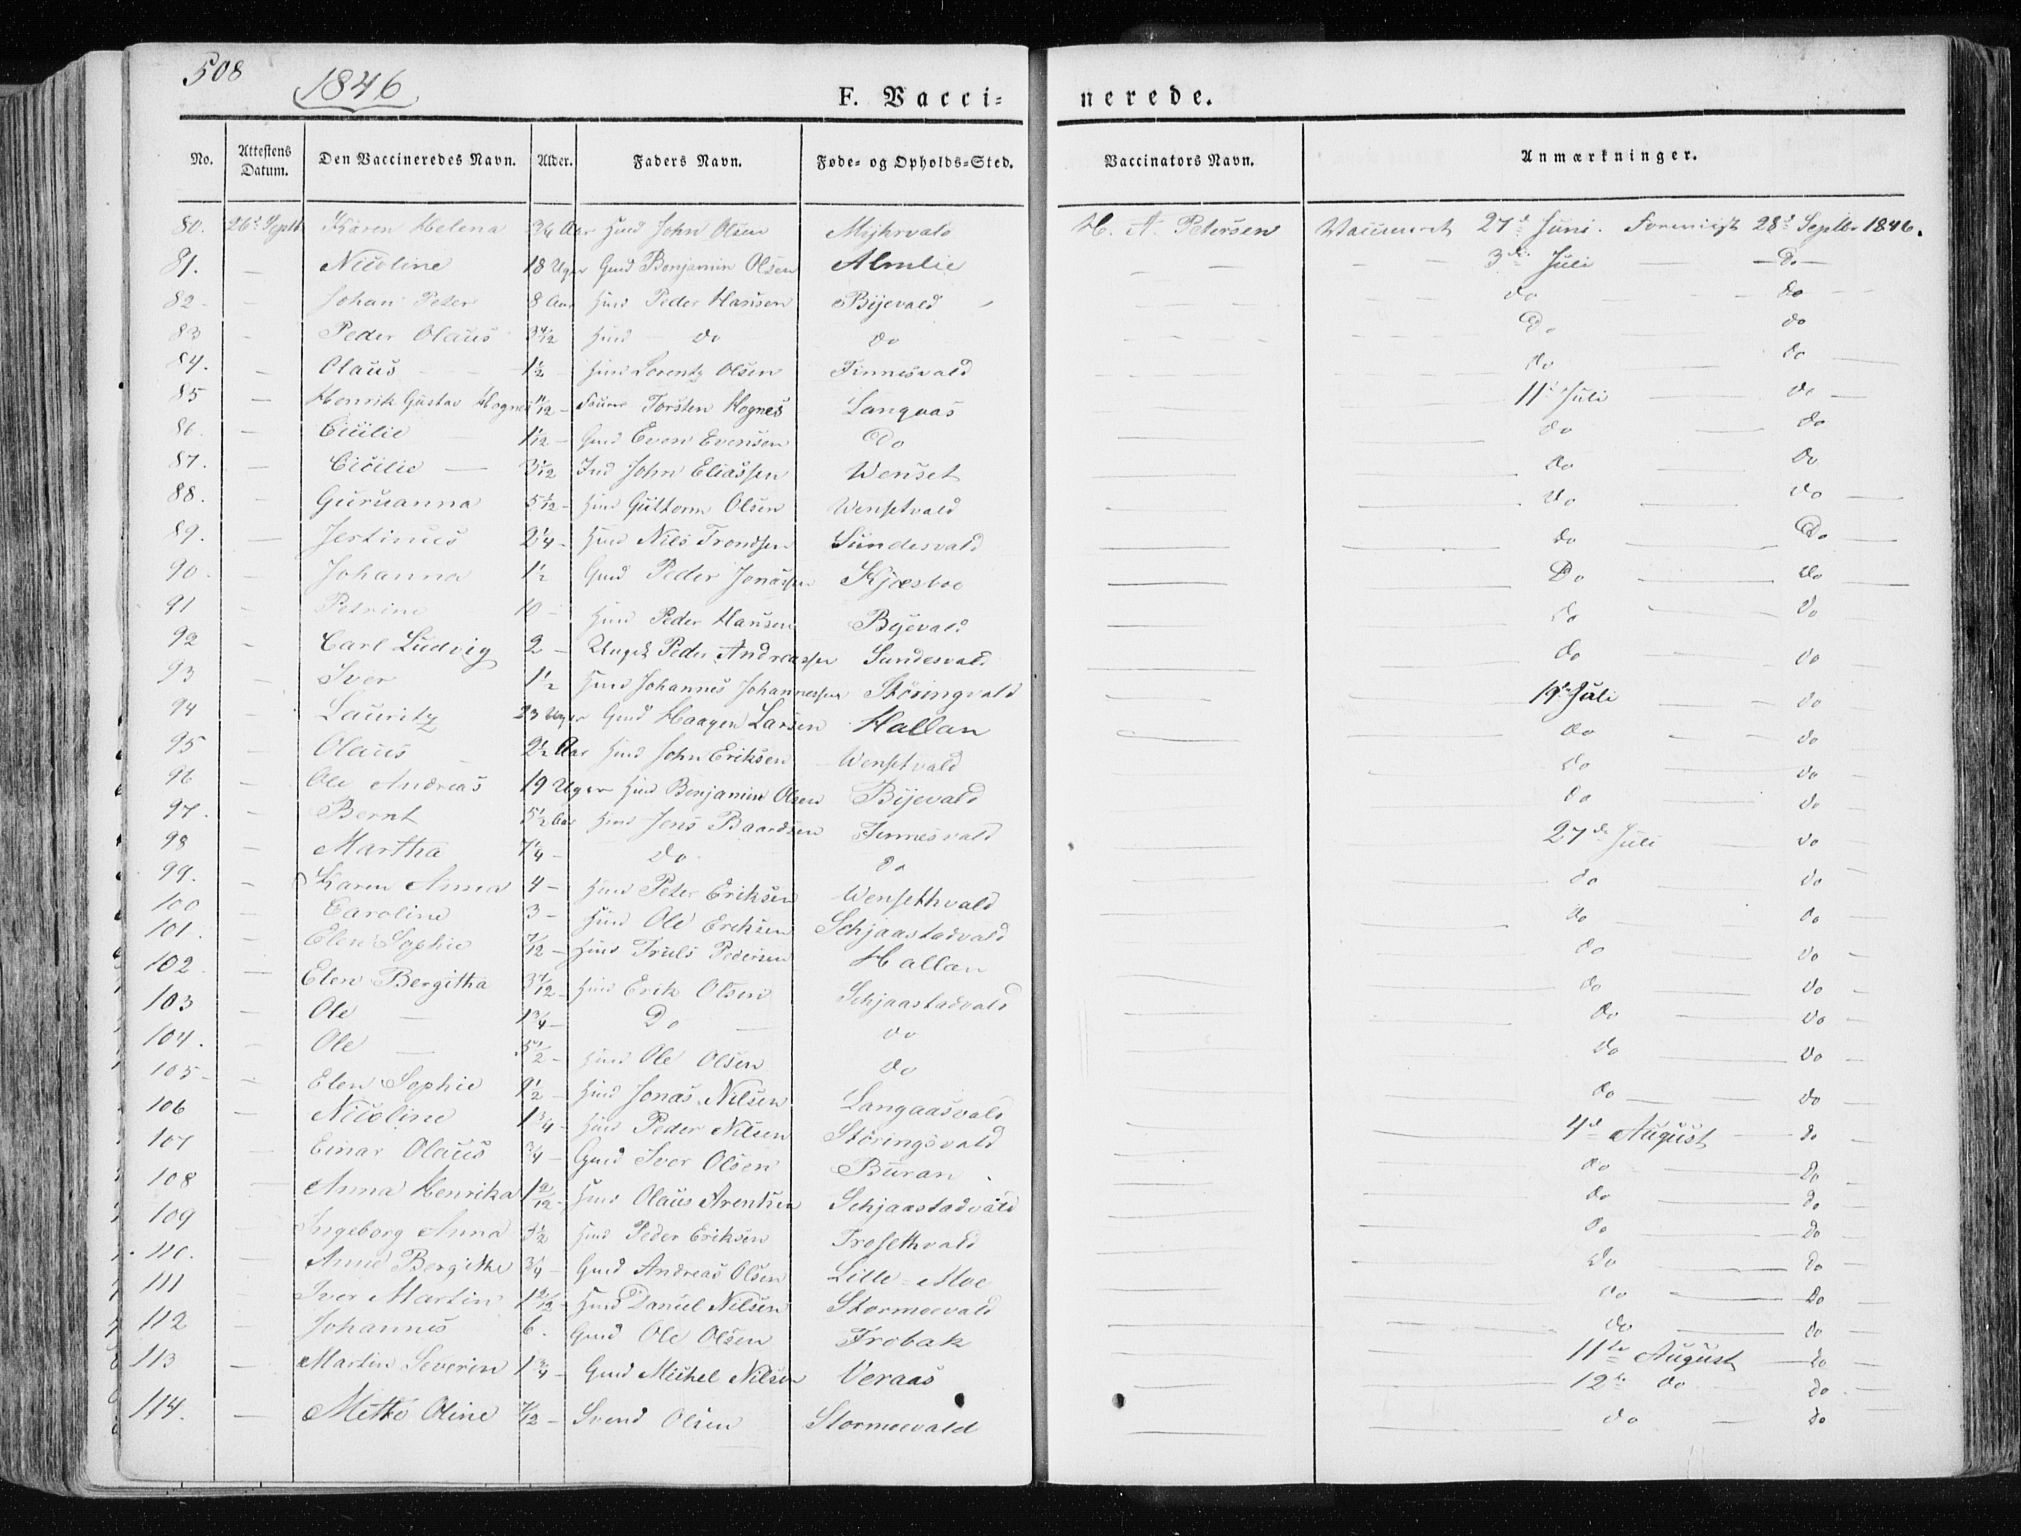 508
1846
F. Vacci= nerede.
No. Attestens Datum. Den Vaccineredes Navn. Alder. Faders Navn. Føde- og Opholds=Sted. Vaccinators Navn. Anmærkninger.
80. 26d Septb Karen Helena 3/4 Aar Huusd John Olsen Mijhrvald H. A. Petersen Vaccineret 27d Juni. Foreviist 28d Septbr 1846.
81. — Nicoline 18 Uger Gmd Benjamin Olsen Almlie — — 3die Juli — Do —
82 - Johan Peter 8 Aar Huusd Peder Hansen Bijevald do do
83 - Peder Olaus 3 4/12 Huusd do do Do do
84. — Olaus 1 1/2 Huusd Lorentz Olsen Finnesvald do do
85 — Henrik Gustav Hognes 11/12 - Torsten Hognes Langaas 11d Juli do
86. — Cicilie 1 1/12 - Gmd Even Evensen Do do do
87. — Cicilie — 3 1/12 Ind John Eliassen Wenset do do
88. — Guruanna 5 1/12 - Huusd Guttorm Olsen Wensetvald do do
89. — Jertinus 2 1/4 - Huusd Nils Trondsen Sundesvald do Do
90. - Johanna 1 1/2 Gmd Peder Jonassen Kjæsboe Do do
91 - Petrine 10 - Huusd Peder Hansen Bijevald do do
92 - Carl Ludvig 2 — Ungk Peder Andreassen Sundesvald do do
93 - Iver 1 1/2 Huusd Johannes Johannessen Störingvald 19d Juli do
94 - Lauritz 23 Uger Gmd Haagen Larsen Hallan do do
95 - Olaus 2 1/2 Aar Huusd John Eriksen Wensetvald do do
96 - Ole Andreas 19 Uger Huusd Benjamin Olsen Bijevald do do
97. - Bernt 5 1/2 Aar Huusd Jens Baardsen Finnesvald 27de Juli do
98 - Martha 7 1/4 - Do do do do
99. - Karen Anna 4 — Huusd Peter Eriksen Wensethvald do do
100 - Caroline 3 - Huusd Ole Eriksen Schjaastadvald do do
101. - Elen Sophie 7/12 - Huusd Truls Pedersen Hallan do do
102. — Elen Bergitha 3 1/12 - Huusd Erik Olsen Schjaastadvald do do
103 - Ole — 1 3/4 — Do — do do do
104. - Ole — 5 1/2 - Huusd Ole Olsen do do do
105 - Elen Sophie 9 1/2 - Huusd Jonas Nilsen Langaasvald 4d August do
106 - Nicoline 1 3/4 - Huusd Peder Nilsen Störingsvald do Do
107 - Einar Olaus 3/4 - Gmd Iver Olsen Buran do do
108 Anna Henrika 1 2/12 - Huusd Olaus Arentsen Schjaastadvald do do
109 Ingeborg Anna 5 1/2 Huusd Peder Eriksen Trosethvald do do
110. Anne Bergitte 3 1/4 - Gmd Andreas Olsen Lille=Moe do Do
111 Iver Martin 1 2/12 - Huusd Daniel Nilsen Stormoevald do do
112 Johannes 6. Gmd Ole Olsen Trobak 11te August do
113 — Martin Severin 1 3/4 - Gmd Michel Nilsen Veraas 12te do do
114. — Mette Oline 7/12 - Svend Olsen Stormoevald do — do